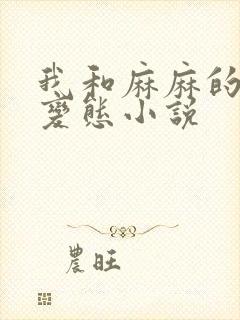 我和麻麻的
变态小说
農旺